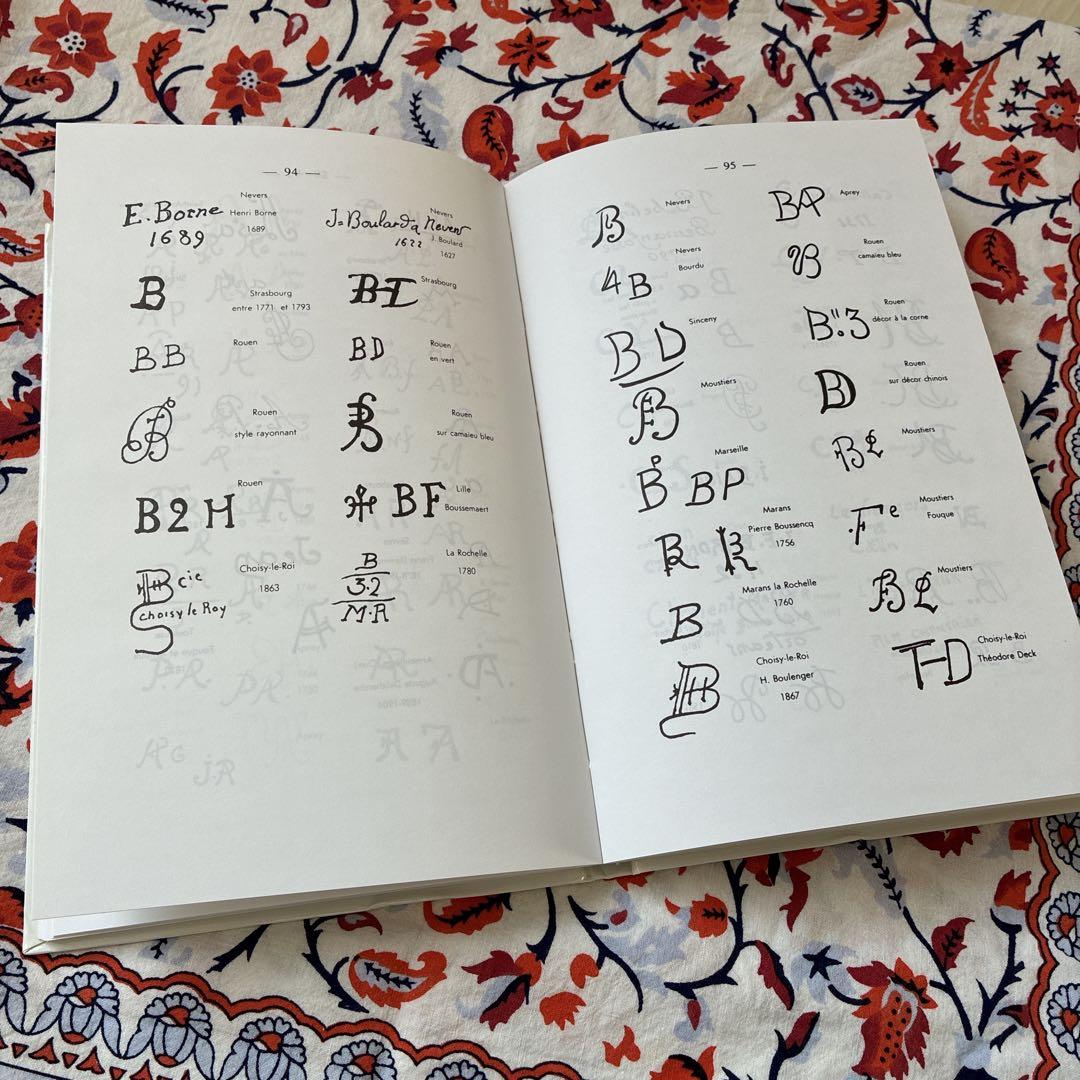 — 94 —
Nevers
E. Borne
1689
Henri Borne
1689
Nevers
J= Boulard a Nevers
1622
J. Boulard
1627
B
Strasbourg
entre 1771 et 1793
Strasbourg
BB
Rouen
BD
Rouen
en vert
Rouen
style rayonnant
Rouen
sur camaieu bleu
B2H
Rouen
BF
Lille
Boussemaert
HB cie
choisy le Roy
Choisy-le-Roi
1863
B
3·2
M·R
La Rochelle
1780
— 95 —
B
Nevers
4B
Nevers
Bourdu
BD
Sinceny
Moustiers
B BP
Marseille
Marans
Pierre Boussencq
1756
B
Marans la Rochelle
1760
HB
Choisy-le-Roi
H. Boulenger
1867
BAP
Aprey
B
Rouen
camaieu bleu
B":3
Rouen
décor à la corne
Rouen
sur décor chinois
Moustiers
Fe
Moustiers
Fouque
Moustiers
T-D
Choisy-le-Roi
Théodore Deck